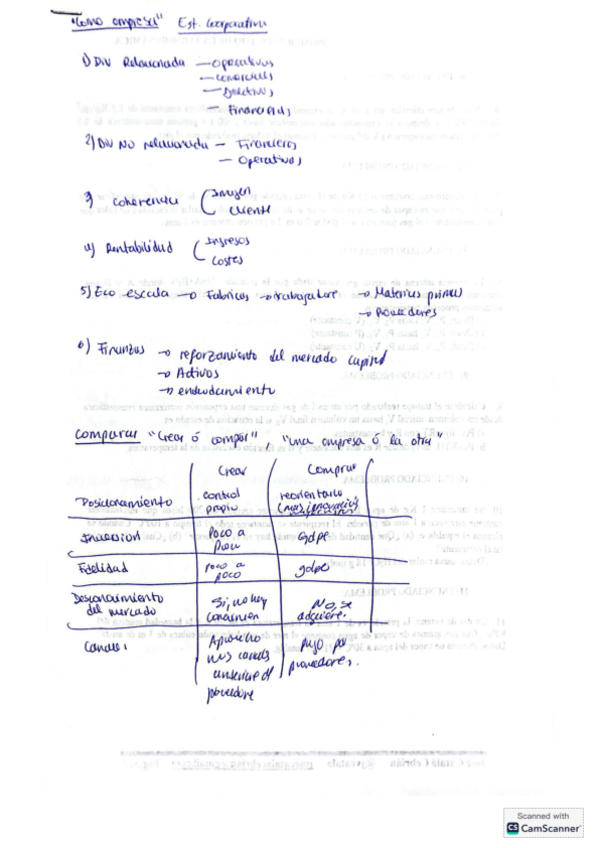 "Como empresa" Est. Corporativa
1) Div Relacionada — Operativos
— Comerciales
— Directivos
— Financieros
2) Div No relacionada — Financieros
— Operativos
3) Coherencia ( Imagen
Cliente
4) Rentabilidad ( Ingresos
Costes
5) Eco escala → Fabricas → trabajadores → Materias primas
→ Proveedores
6) Finanzas → reforzamiento del mercado capital
→ Activos
→ endeudamiento
Comparar "Crear ó comprar", "una empresa ó la otra"
Crear Comprar
Posicionamiento control propio reorientarlo
Inversion Poco a Poco Golpe
Fidelidad Poco a poco golpe
Desconocimiento del mercado Si, no hay No, se adquiere.
Canales Aprovecho mis canales del proveedores